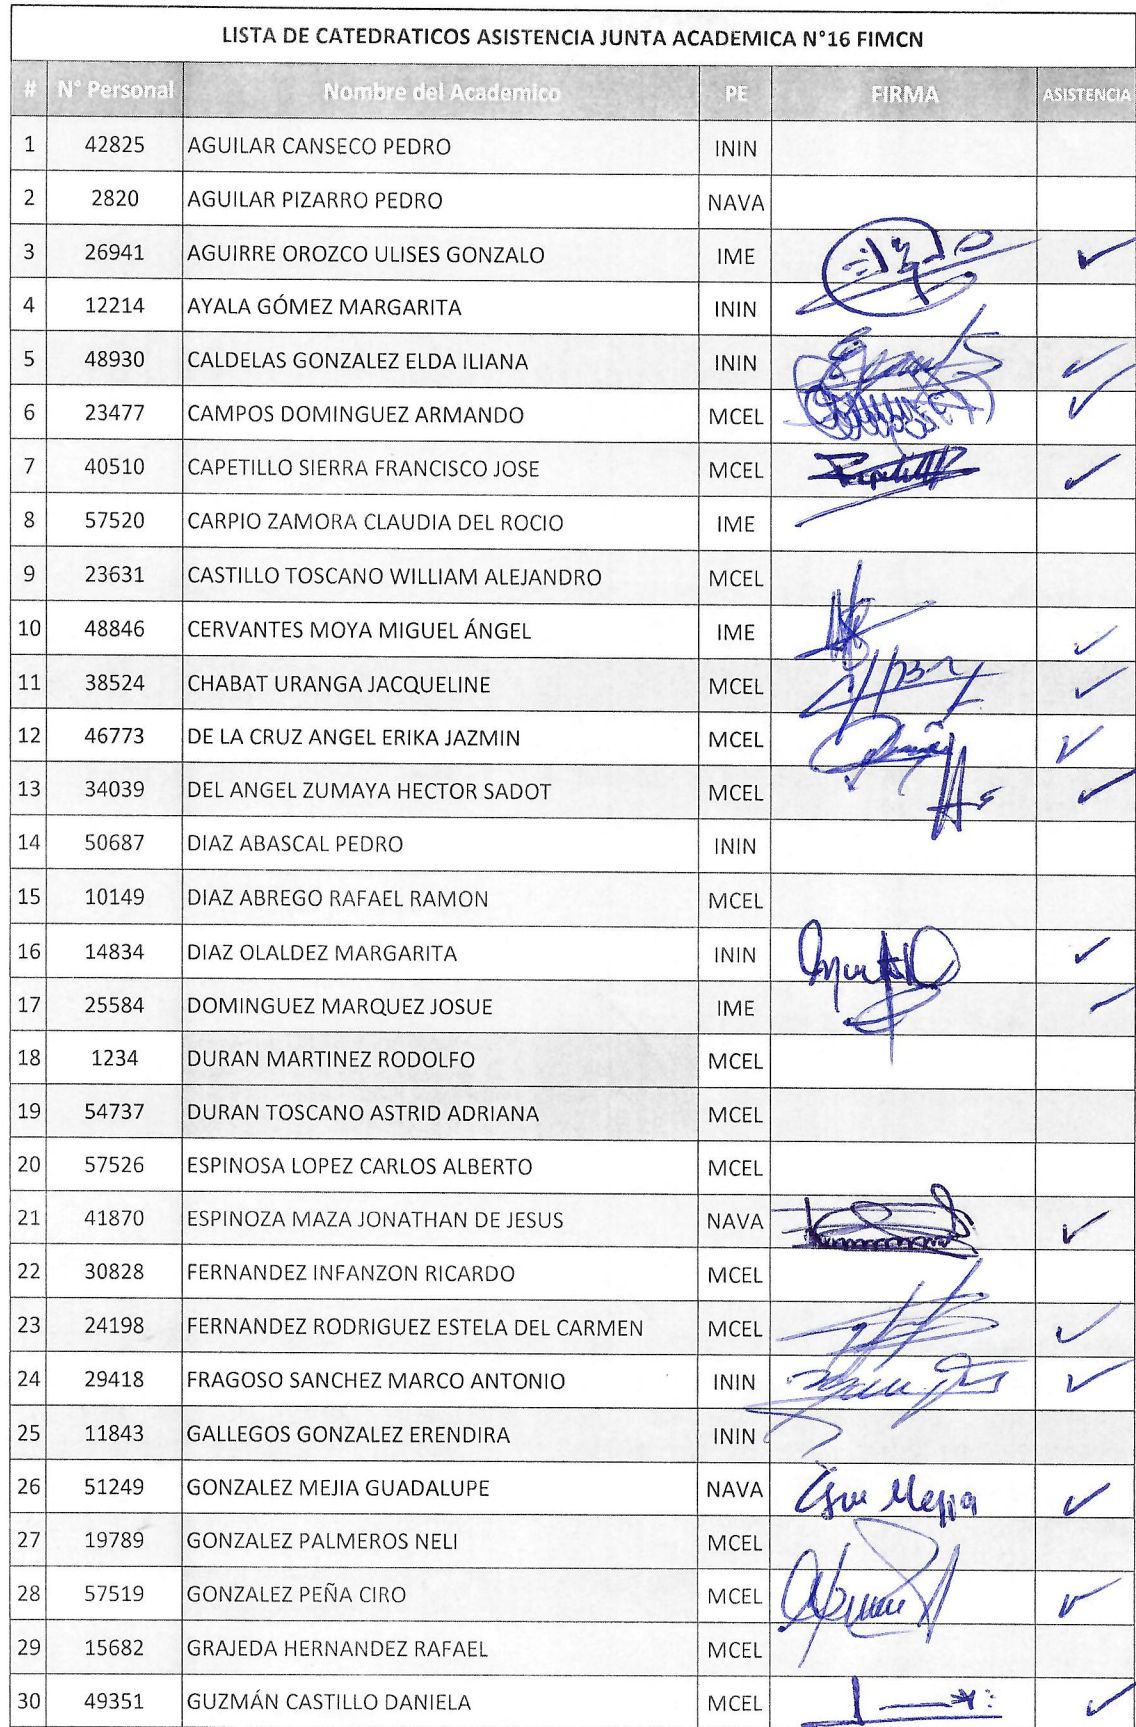 LISTA DE CATEDRATICOS ASISTENCIA JUNTA ACADEMICA N°16 FIMCN
# N° Personal Nombre del Academico PE FIRMA ASISTENCIA
1 42825 AGUILAR CANSECO PEDRO ININ
2 2820 AGUILAR PIZARRO PEDRO NAVA
3 26941 AGUIRRE OROZCO ULISES GONZALO IME ✓
4 12214 AYALA GÓMEZ MARGARITA ININ
5 48930 CALDELAS GONZALEZ ELDA ILIANA ININ ✓
6 23477 CAMPOS DOMINGUEZ ARMANDO MCEL ✓
7 40510 CAPETILLO SIERRA FRANCISCO JOSE MCEL ✓
8 57520 CARPIO ZAMORA CLAUDIA DEL ROCIO IME
9 23631 CASTILLO TOSCANO WILLIAM ALEJANDRO MCEL
10 48846 CERVANTES MOYA MIGUEL ÁNGEL IME ✓
11 38524 CHABAT URANGA JACQUELINE MCEL ✓
12 46773 DE LA CRUZ ANGEL ERIKA JAZMIN MCEL ✓
13 34039 DEL ANGEL ZUMAYA HECTOR SADOT MCEL ✓
14 50687 DIAZ ABASCAL PEDRO ININ
15 10149 DIAZ ABREGO RAFAEL RAMON MCEL
16 14834 DIAZ OLALDEZ MARGARITA ININ ✓
17 25584 DOMINGUEZ MARQUEZ JOSUE IME ✓
18 1234 DURAN MARTINEZ RODOLFO MCEL
19 54737 DURAN TOSCANO ASTRID ADRIANA MCEL
20 57526 ESPINOSA LOPEZ CARLOS ALBERTO MCEL
21 41870 ESPINOZA MAZA JONATHAN DE JESUS NAVA ✓
22 30828 FERNANDEZ INFANZON RICARDO MCEL
23 24198 FERNANDEZ RODRIGUEZ ESTELA DEL CARMEN MCEL ✓
24 29418 FRAGOSO SANCHEZ MARCO ANTONIO ININ ✓
25 11843 GALLEGOS GONZALEZ ERENDIRA ININ
26 51249 GONZALEZ MEJIA GUADALUPE NAVA Mejia ✓
27 19789 GONZALEZ PALMEROS NELI MCEL
28 57519 GONZALEZ PEÑA CIRO MCEL ✓
29 15682 GRAJEDA HERNANDEZ RAFAEL MCEL
30 49351 GUZMÁN CASTILLO DANIELA MCEL ✓